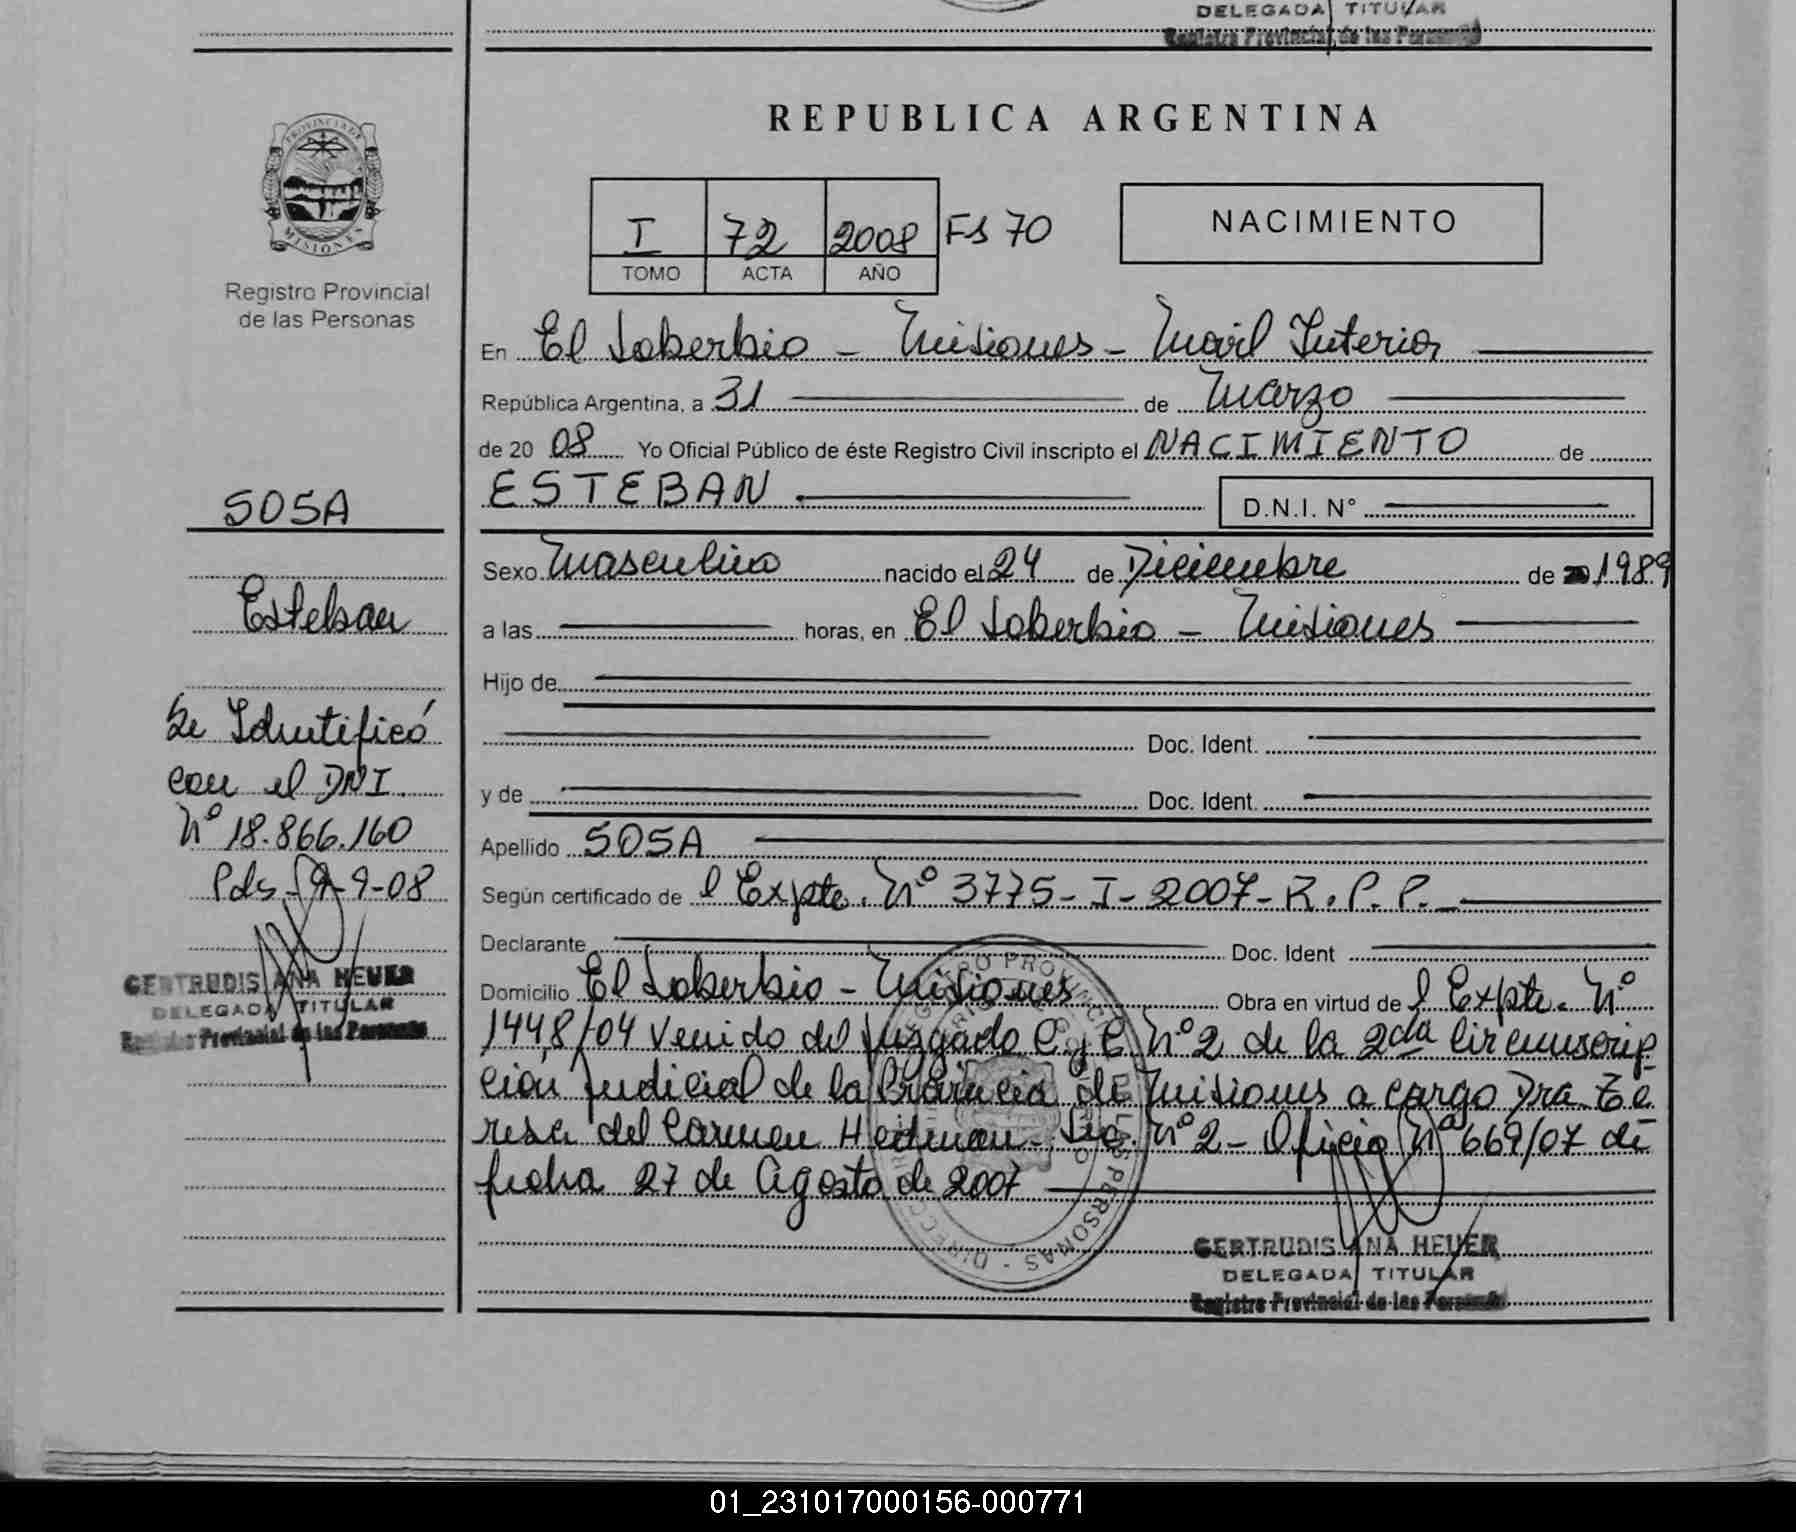 DELEGADA TITULAR
Registro Provincial de las Personas
REPUBLICA ARGENTINA
PROVINCIA DE
MISIONES
Registro Provincial
de las Personas
I 72 2008 Fs 70
TOMO ACTA AÑO
NACIMIENTO
En El Soberbio - Misiones - Movil Interior
República Argentina, a 31 de Marzo
de 20 08 Yo Oficial Público de éste Registro Civil inscripto el NACIMIENTO de
ESTEBAN
D.N.I. N°
SOSA
Esteban
Sexo Masculino nacido el 24 de Diciembre de 20 1989
a las horas, en El Soberbio - Misiones
Hijo de
Doc. Ident.
y de Doc. Ident.
Apellido SOSA
Según certificado de l Expte. Nº 3775-I-2007-R.P.P.
Declarante Doc. Ident
Domicilio El Soberbio - Misiones Obra en virtud de l Expte. Nº
1448/04 Venido del Juzgado C. y C. Nº 2 de la 2da Circunscrip-
ción Judicial de la Provincia de Misiones a cargo Dra. Te
resa del Carmen Hedman - Sec. Nº 2 - Oficio Nº 669/07 de
fecha 27 de Agosto de 2007
Se Identificó
con el DNI.
Nº 18.866.160
Pds. 9-9-08
GERTRUDIS ANA HEUER
DELEGADA TITULAR
Registro Provincial de las Personas
GERTRUDIS ANA HEUER
DELEGADA TITULAR
Registro Provincial de las Personas
01_231017000156-000771